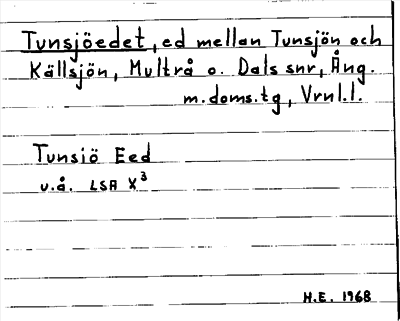 Tunsjöedet, ed mellan Tunsjön och
Källsjön, Multrå o. Dals snr, Ång.
m.doms.tg, Vrnl.l.
Tunsiö Eed
u.å. LSA X³
H.E. 1968